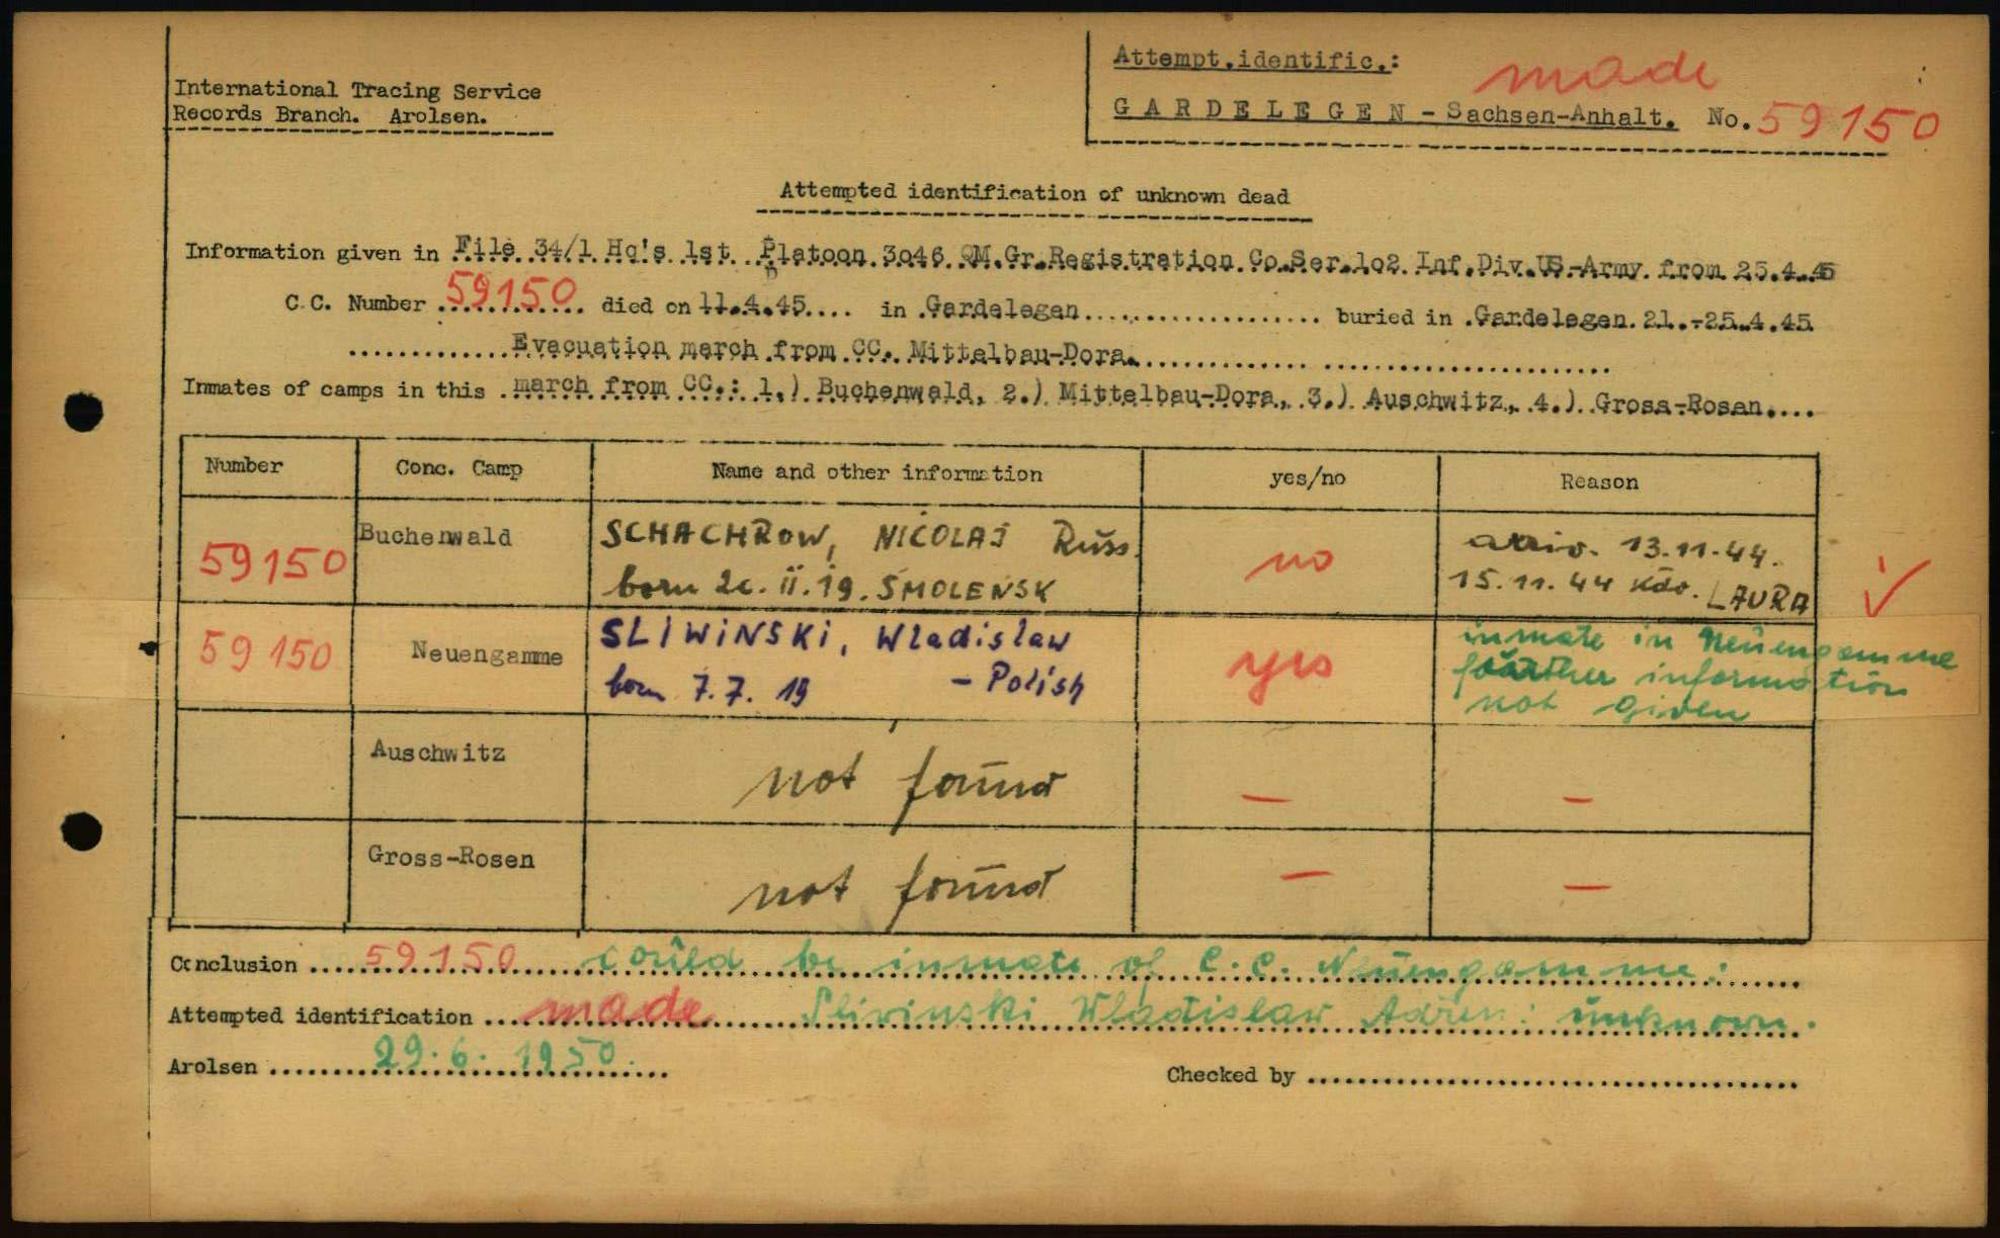 Attempt.identific.: made
International Tracing Service
Records Branch. Arolsen.
GARDELEGEN - Sachsen-Anhalt. No. 59150
Attempted identification of unknown dead
Information given in File 34/1 Hq's 1st Platoon 3046 QM.Gr.Registration Co.Ser.102 Inf.Div.US-Army from 25.4.45
C.C. Number 59150 died on 11.4.45 in Gardelegen buried in Gardelegen 21.-25.4.45
Evacuation march from CC. Mittelbau-Dora.
Inmates of camps in this march from CC.: 1.) Buchenwald, 2.) Mittelbau-Dora, 3.) Auschwitz, 4.) Gross-Rosen.
Number Conc. Camp Name and other information yes/no Reason
59150 Buchenwald SCHACHROW, NICOLAJ Russ. no arriv. 13.11.44.
born II.19. SMOLENSK 15.11.44 Kdo. LAURA
59150 Neuengamme SLIWINSKI, Wladislaw yes inmate in Neuengamme
born 7.7.19 - Polish further information
not given
Auschwitz not found - -
Gross-Rosen not found - -
Conclusion 59150 could be inmate of C.C. Neuengamme:
Attempted identification made Slivinski Wladislaw Adren: unknown.
Arolsen 29.6.1950.
Checked by